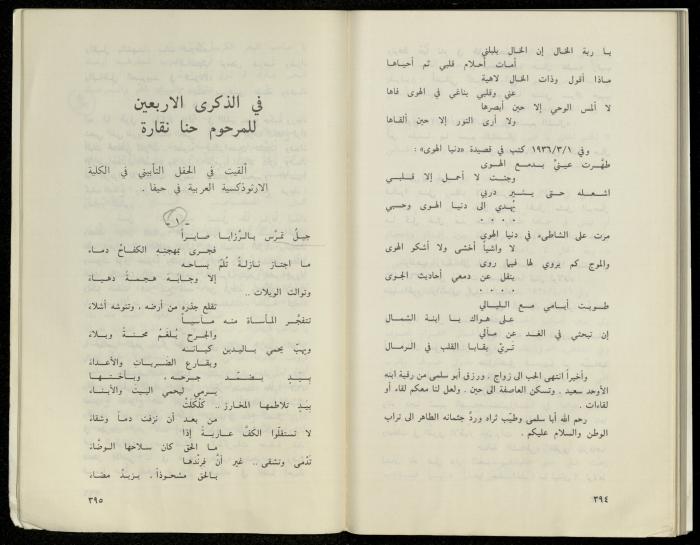 يا ربة الخال إن الخال يلبلني
أمات أحلام قلبي ثم أحياها
ماذا أقول وذات الخال لاهية
عني وقلبي يناغي في الهوى فاها
لا ألمس الوحي إلا حين أبصرها
ولا أرى النور إلا حين ألقاها
وفي ١٩٣٦/٣/١ كتب في قصيدة «دنيا الهوى» :
طهَّرت عينيَّ بدمع الهوى
وجئت لا أحمل إلا قلبي
اشعله حتى ينير دربي
يُهدي الى دنيا الهوى وحسبي
٠ ٠ ٠ ٠
مرت على الشاطىء في دنيا الهوى
لا واشياً أخشى ولا أشكو الهوى
والموج كم يروي لها فيما روى
ينقل عن دمعي أحاديث الجوى
٠ ٠ ٠ ٠
طويت أيامي مع الليالي
على هواك يا ابنة الشمال
إن تبحثي في الغد عن مآلي
تريْ بقايا القلب في الرمال
وأخيراً انتهى الحب الى زواج . ورزق أبو سلمى من رقية ابنه
الأوحد سعيد . وتسكن العاصفة الى حين . ولعل لنا معكم لقاء أو
لقاءات .
رحم الله أبا سلمى وطيّب ثراه وردّ جثمانه الطاهر الى تراب
الوطن والسلام عليكم .
٣٩٤
في الذكرى الاربعين
للمرحوم حنا نقارة
ألقيت في الحفل التأبيني في الكلية
الارثوذكسية العربية في حيفا .
- ١ -
جبلٌ تمرّس بالرّزايا صابراً
فجرى بمهجتهِ الكفاحُ دماء
ما اجتاز نازلةً تُلمّ بساحه
إلا وجابَهَ هجمةً دهياء
وتوالت الويلات ..
تقلع جذره من أرضه ، وتنوشه أشلاء
تتفجَّر المأساة منه مآسياً
والجرح يُلغمُ محنةً وبلاء
ويهبّ يحمي باليدين كيانه
ويقارع الضربات والأعداء
بيدٍ يضمّد جرحه . وبأختها
يرمي ليحمي البيت والأبناء
بيَدٍ تلاطمها المخارز .. كلْكلتْ
من بعد أن نزفت دماً وشقاء
لا تستقلّوا الكفَّ عاريةً إذا
ما الحق كان سلاحها الوضّاء
تدْمَى وتشقى .. غير أنّ فرنْدها
بالحق مشحوذاً . يزيدُ مضاء
٣٩٥